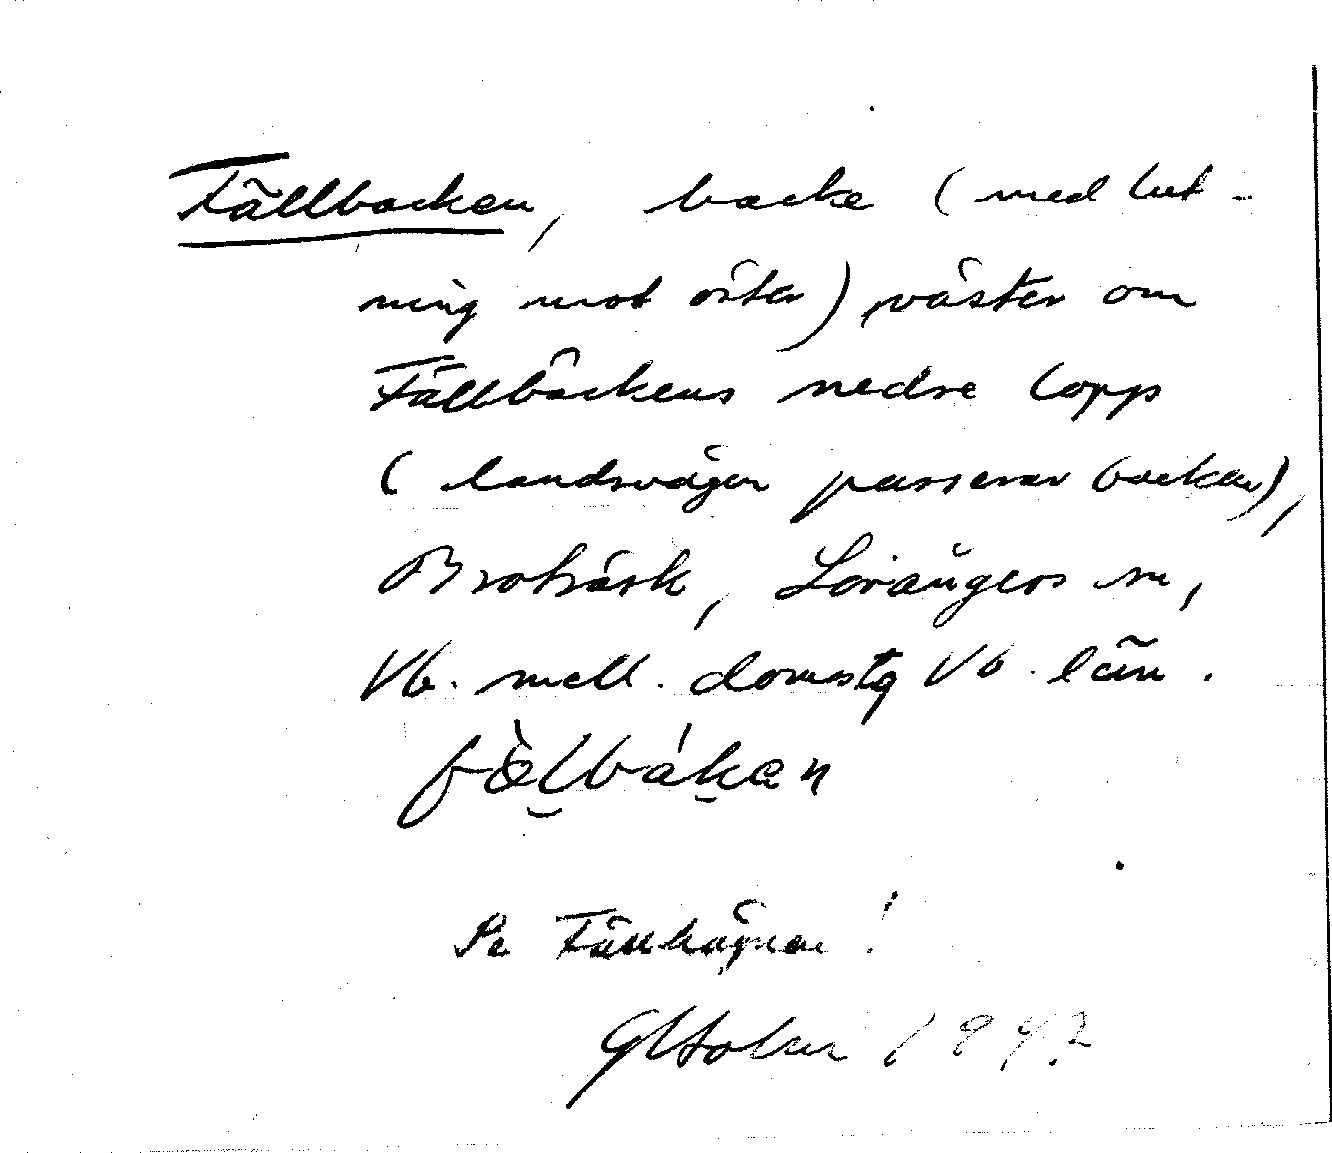 Fällbacken, backe (med lut-
ning mot öster) väster om
Fällbäckens nedre lopp
(landsvägen passerar backen),
Broträsk, Lövångers sn,
Vb. mell. domstg Vb. län.
Se Fällhägnen!
1942